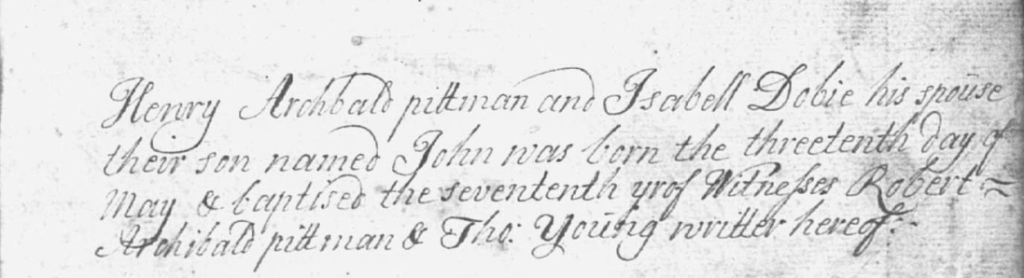 Henry Archbald pittman and Isabell Dobie his spouse
their son named John was born the threetenth day of
May & baptised the sevententh yrof Witnesses Robert =
Archibald pittman & Tho: Young writter hereof.